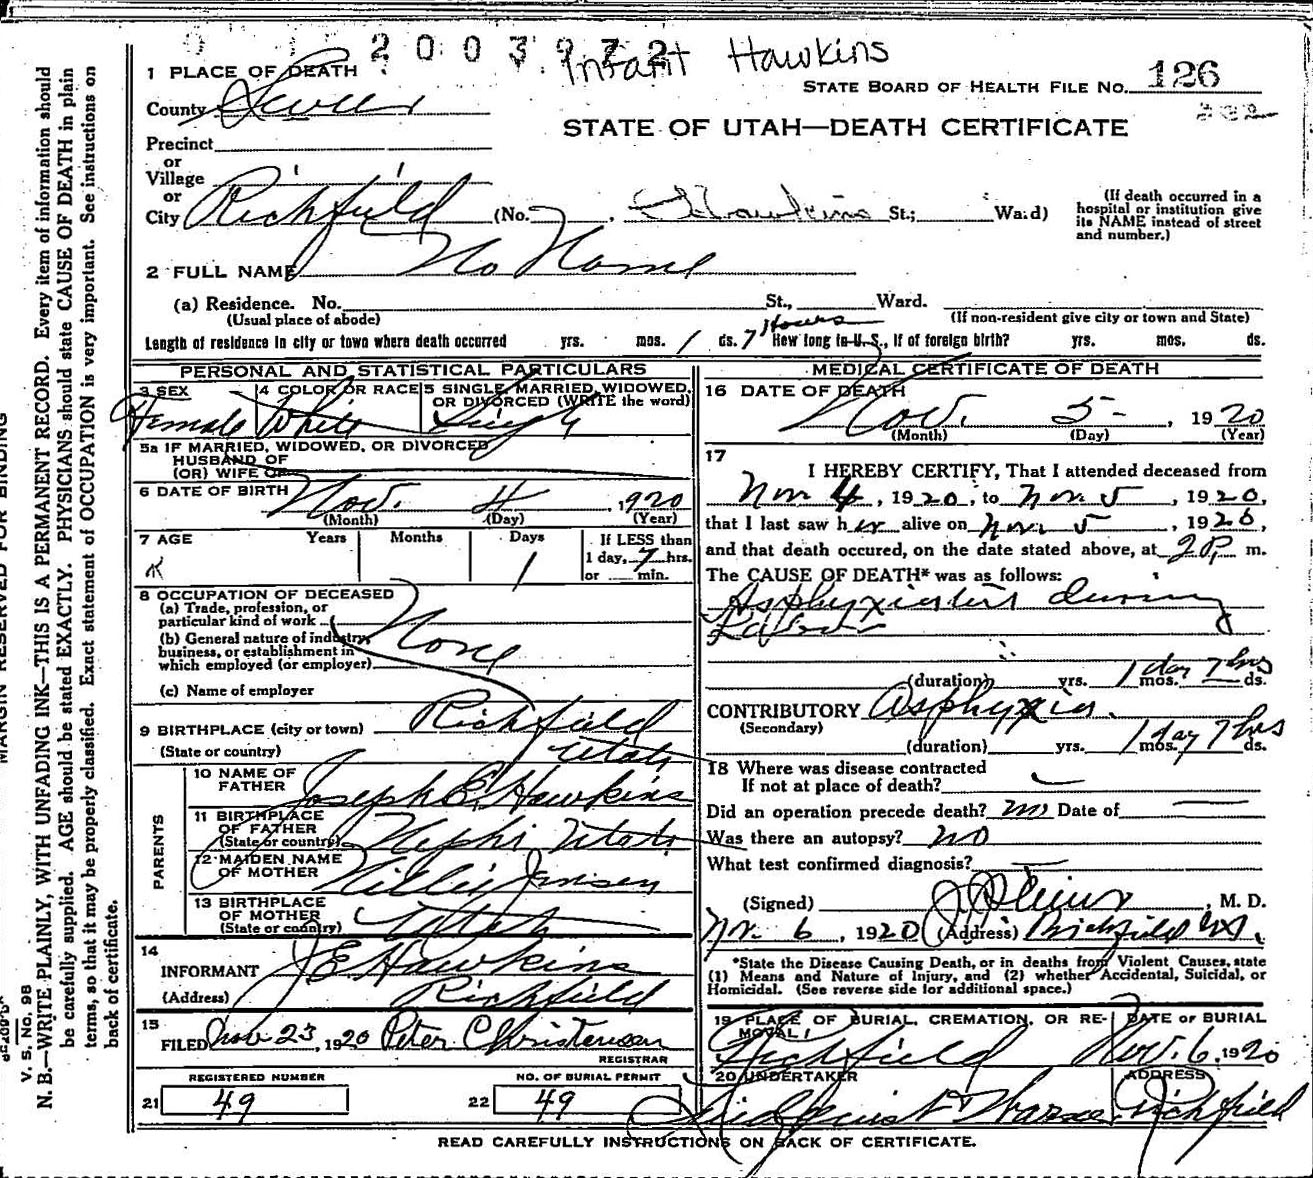 2003972
Infant Hawkins
1 PLACE OF DEATH
STATE BOARD OF HEALTH FILE NO. 126
County Sevier
STATE OF UTAH—DEATH CERTIFICATE
Precinct
or
Village
or
City Richfield (No. , Hawkins St.; Ward)
(If death occurred in a hospital or institution give its NAME instead of street and number.)
2 FULL NAME No Name
(a) Residence. No. St., Ward.
(Usual place of abode) (If non-resident give city or town and State)
Length of residence in city or town where death occurred yrs. mos. 1 ds. 7 Hours How long in U. S., if of foreign birth? yrs. mos. ds.
PERSONAL AND STATISTICAL PARTICULARS
3 SEX Female
4 COLOR OR RACE White
5 SINGLE, MARRIED, WIDOWED, OR DIVORCED (WRITE the word) Single
5a IF MARRIED, WIDOWED, OR DIVORCED
HUSBAND OF
(OR) WIFE OF
6 DATE OF BIRTH Nov. 4 1920
(Month) (Day) (Year)
7 AGE Years Months Days 1
If LESS than
1 day, 7 hrs.
or min.
8 OCCUPATION OF DECEASED
(a) Trade, profession, or
particular kind of work None
(b) General nature of industry,
business, or establishment in
which employed (or employer)
(c) Name of employer
9 BIRTHPLACE (city or town) Richfield
(State or country) Utah
PARENTS
10 NAME OF FATHER Joseph E. Hawkins
11 BIRTHPLACE OF FATHER (State or country) Nephi Utah
12 MAIDEN NAME OF MOTHER Jensen
13 BIRTHPLACE OF MOTHER (State or country) Utah
14
INFORMANT J E Hawkins
(Address) Richfield
15
FILED Nov 23, 1920 Peter Christensen
REGISTRAR
REGISTERED NUMBER
21 49
NO. OF BURIAL PERMIT
22 49
MEDICAL CERTIFICATE OF DEATH
16 DATE OF DEATH
Nov. 5 , 1920
(Month) (Day) (Year)
17
I HEREBY CERTIFY, That I attended deceased from
Nov 4, 1920, to Nov. 5, 1920,
that I last saw her alive on Nov. 5, 1920,
and that death occured, on the date stated above, at 2 P. m.
The CAUSE OF DEATH* was as follows:
during
Labor
(duration) yrs. 1 day mos. 7 hrs ds.
CONTRIBUTORY Asphyxia.
(Secondary)
(duration) yrs. 1 day mos. 7 hrs ds.
18 Where was disease contracted
If not at place of death?
Did an operation precede death? no Date of
Was there an autopsy? no
What test confirmed diagnosis?
(Signed) , M. D.
Nov. 6, 1920 (Address) Richfield Ut.
*State the Disease Causing Death, or in deaths from Violent Causes, state
(1) Means and Nature of Injury, and (2) whether Accidental, Suicidal, or
Homicidal. (See reverse side for additional space.)
19 PLACE OF BURIAL, CREMATION, OR RE-
MOVAL Richfield
DATE OF BURIAL
Nov. 6, 1920
20 UNDERTAKER
ADDRESS
Richfield
READ CAREFULLY INSTRUCTIONS ON BACK OF CERTIFICATE.
MARGIN RESERVED FOR BINDING
V. S. NO. 98
N. B.—WRITE PLAINLY, WITH UNFADING INK—THIS IS A PERMANENT RECORD. Every item of information should
be carefully supplied. AGE should be stated EXACTLY. PHYSICIANS should state CAUSE OF DEATH in plain
terms, so that it may be properly classified. Exact statement of OCCUPATION is very important. See instructions on
back of certificate.